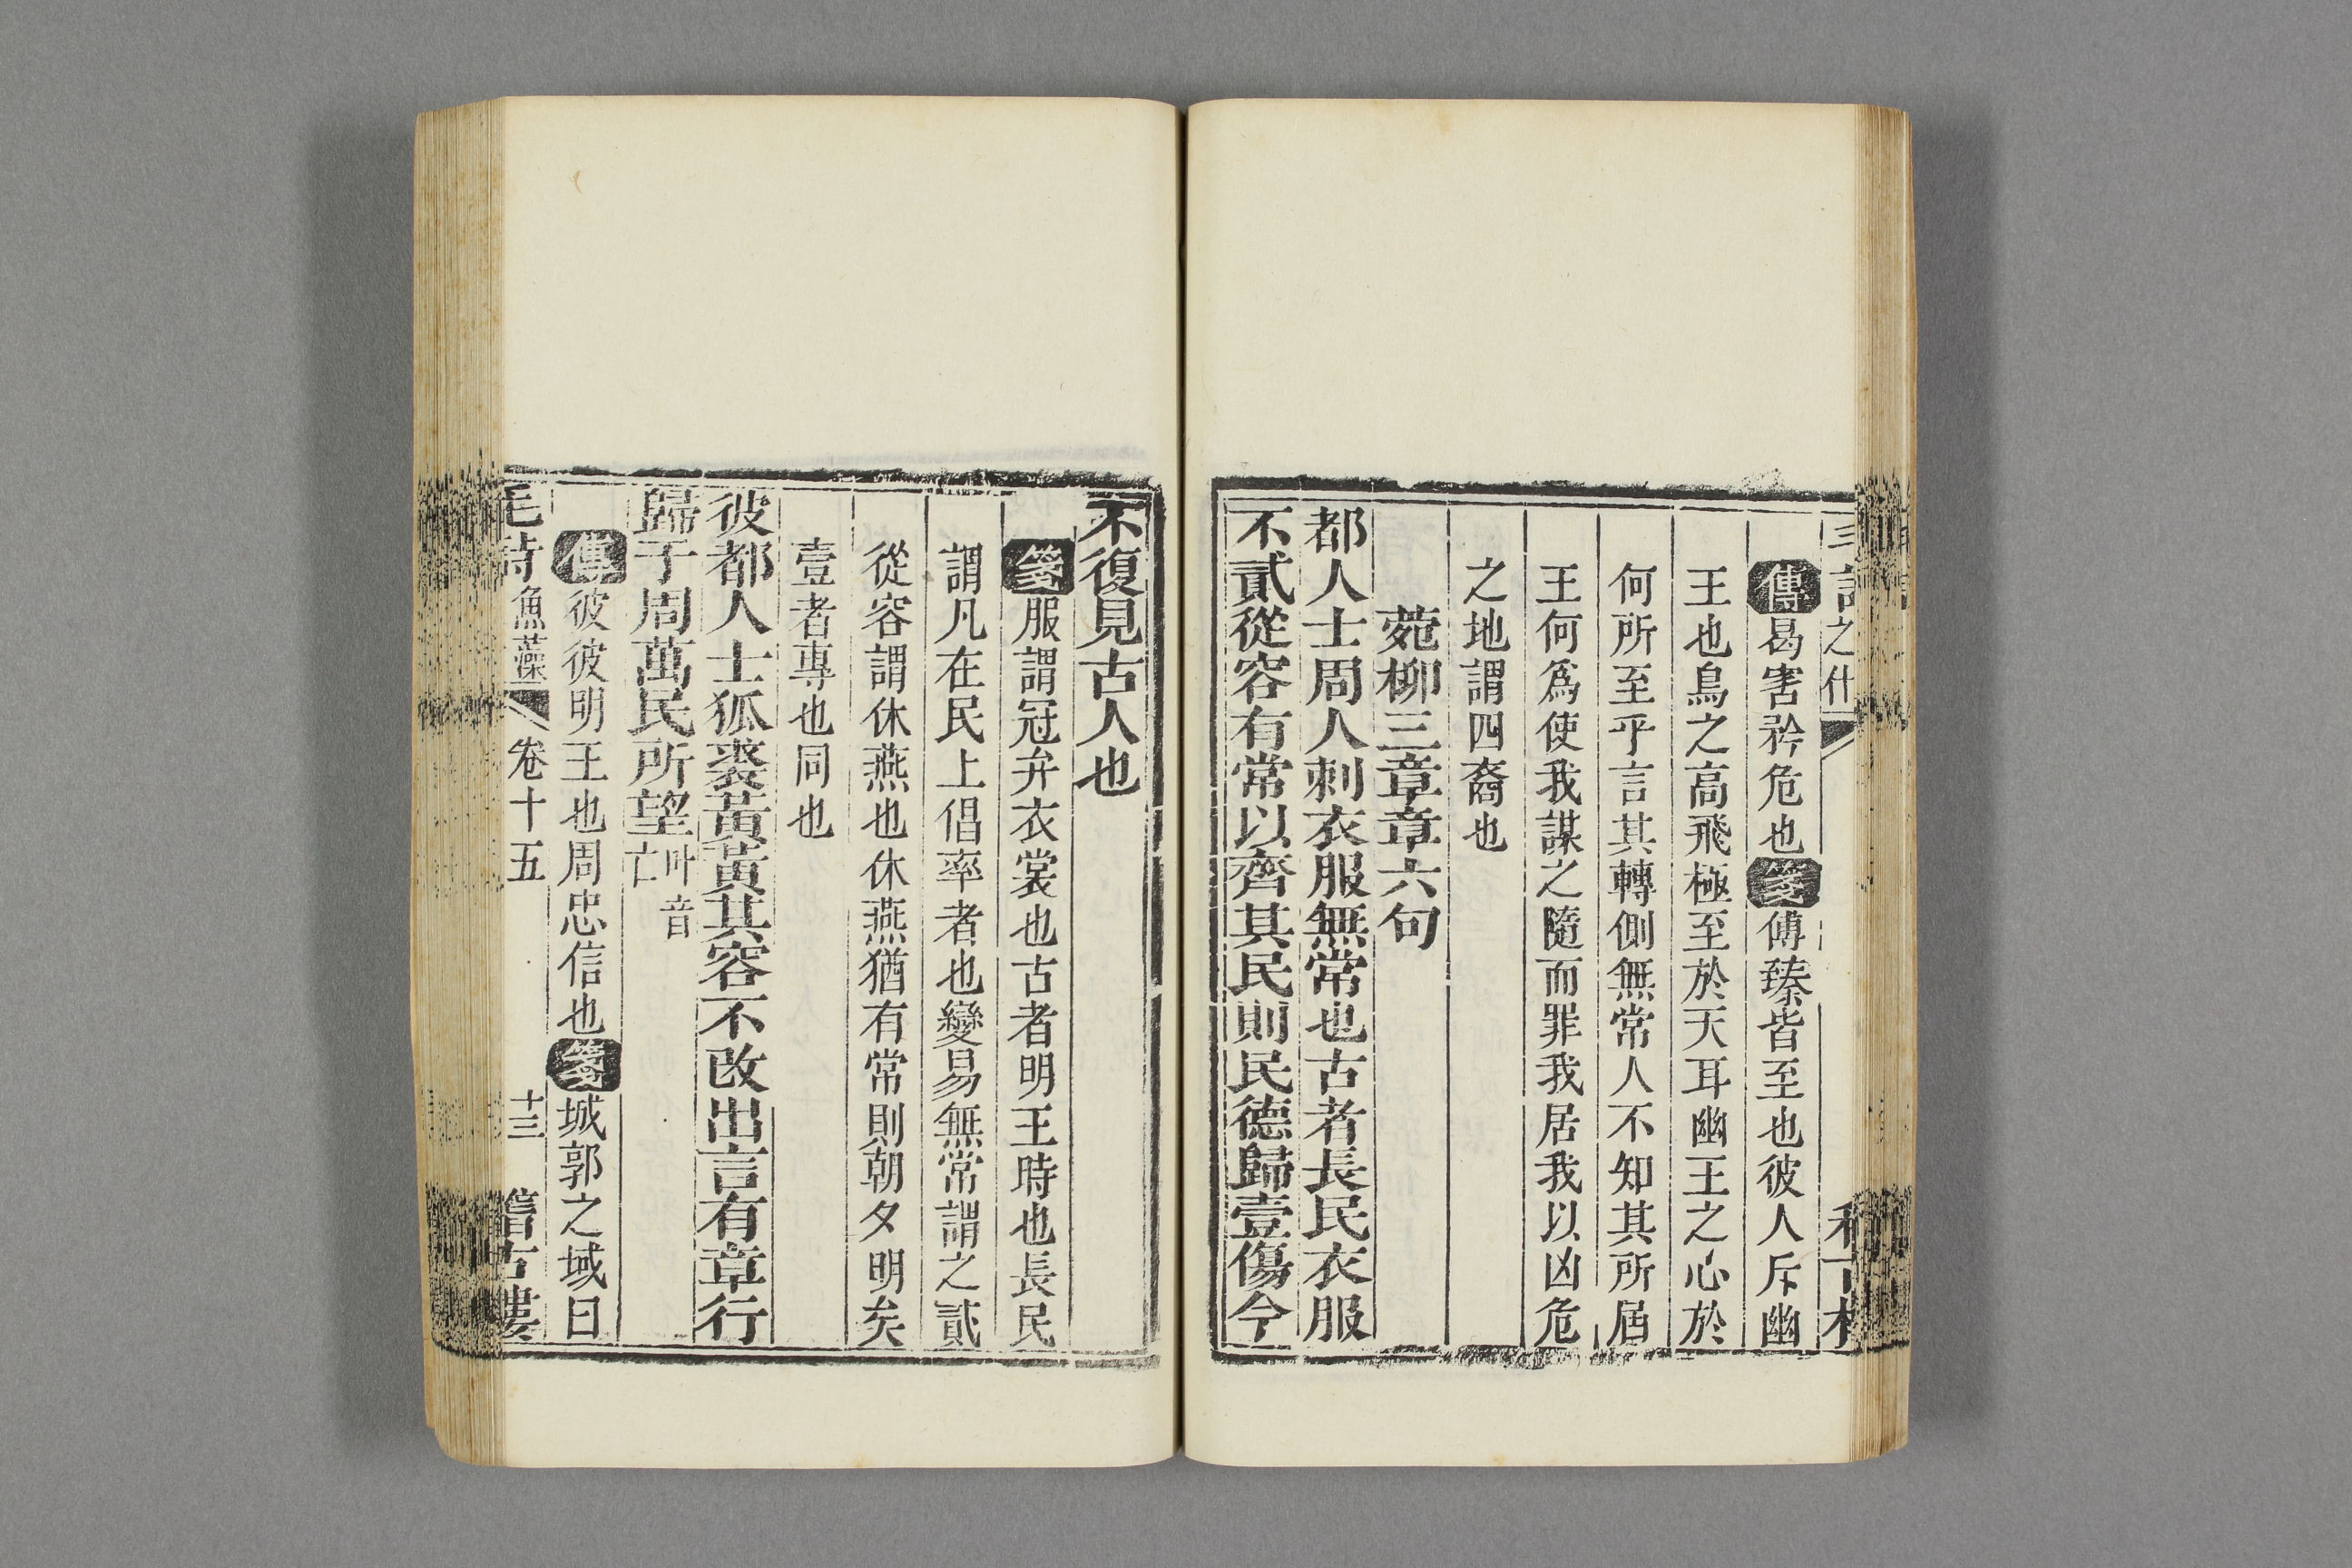 之什
傳曷害矜危也箋傅臻皆至也彼人斥幽
王也鳥之高飛極至於天耳幽王之心於
何所至乎言其轉側無常人不知其所屆
王何爲使我謀之隨而罪我居我以凶危
之地謂四裔也
菀柳三章章六句
都人士周人刺衣服無常也古者長民衣服
不貳從容有常以齊其民則民德歸壹傷今
不復見古人也
箋服謂冠弁衣裳也古者明王時也長民
謂凡在民上倡率者也變易無常謂之貳
從容謂休燕也休燕猶有常則朝夕明矣
壹者專也同也
彼都人士狐裘黃黃其容不改出言有章行
歸于周萬民所望叶音亡
傳彼彼明王也周忠信也箋城郭之域曰
毛詩魚藻 卷十五 十三 㫖古樓